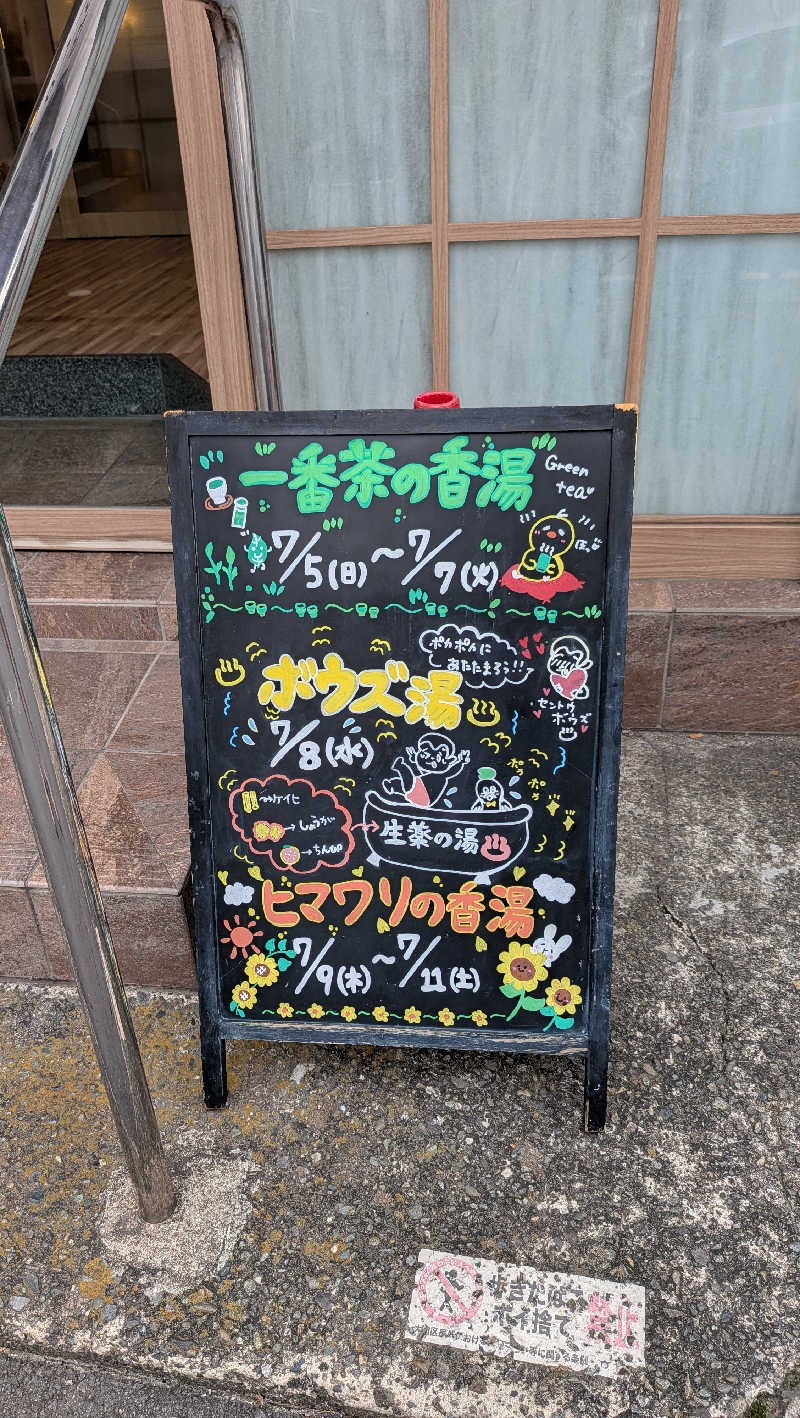 一番茶の香湯
Green
tea
7/5(日)〜7/7(火)
ポカポカに
あたたまろう!!
ボウズ湯
セントウ
ボウズ
7/8(水)
ポカ
ポカ
ケイヒ
しょうが
ちんぴ
生薬の湯
ヒマワリの香湯
7/9(木)〜7/11(土)
ポイ捨て
禁止